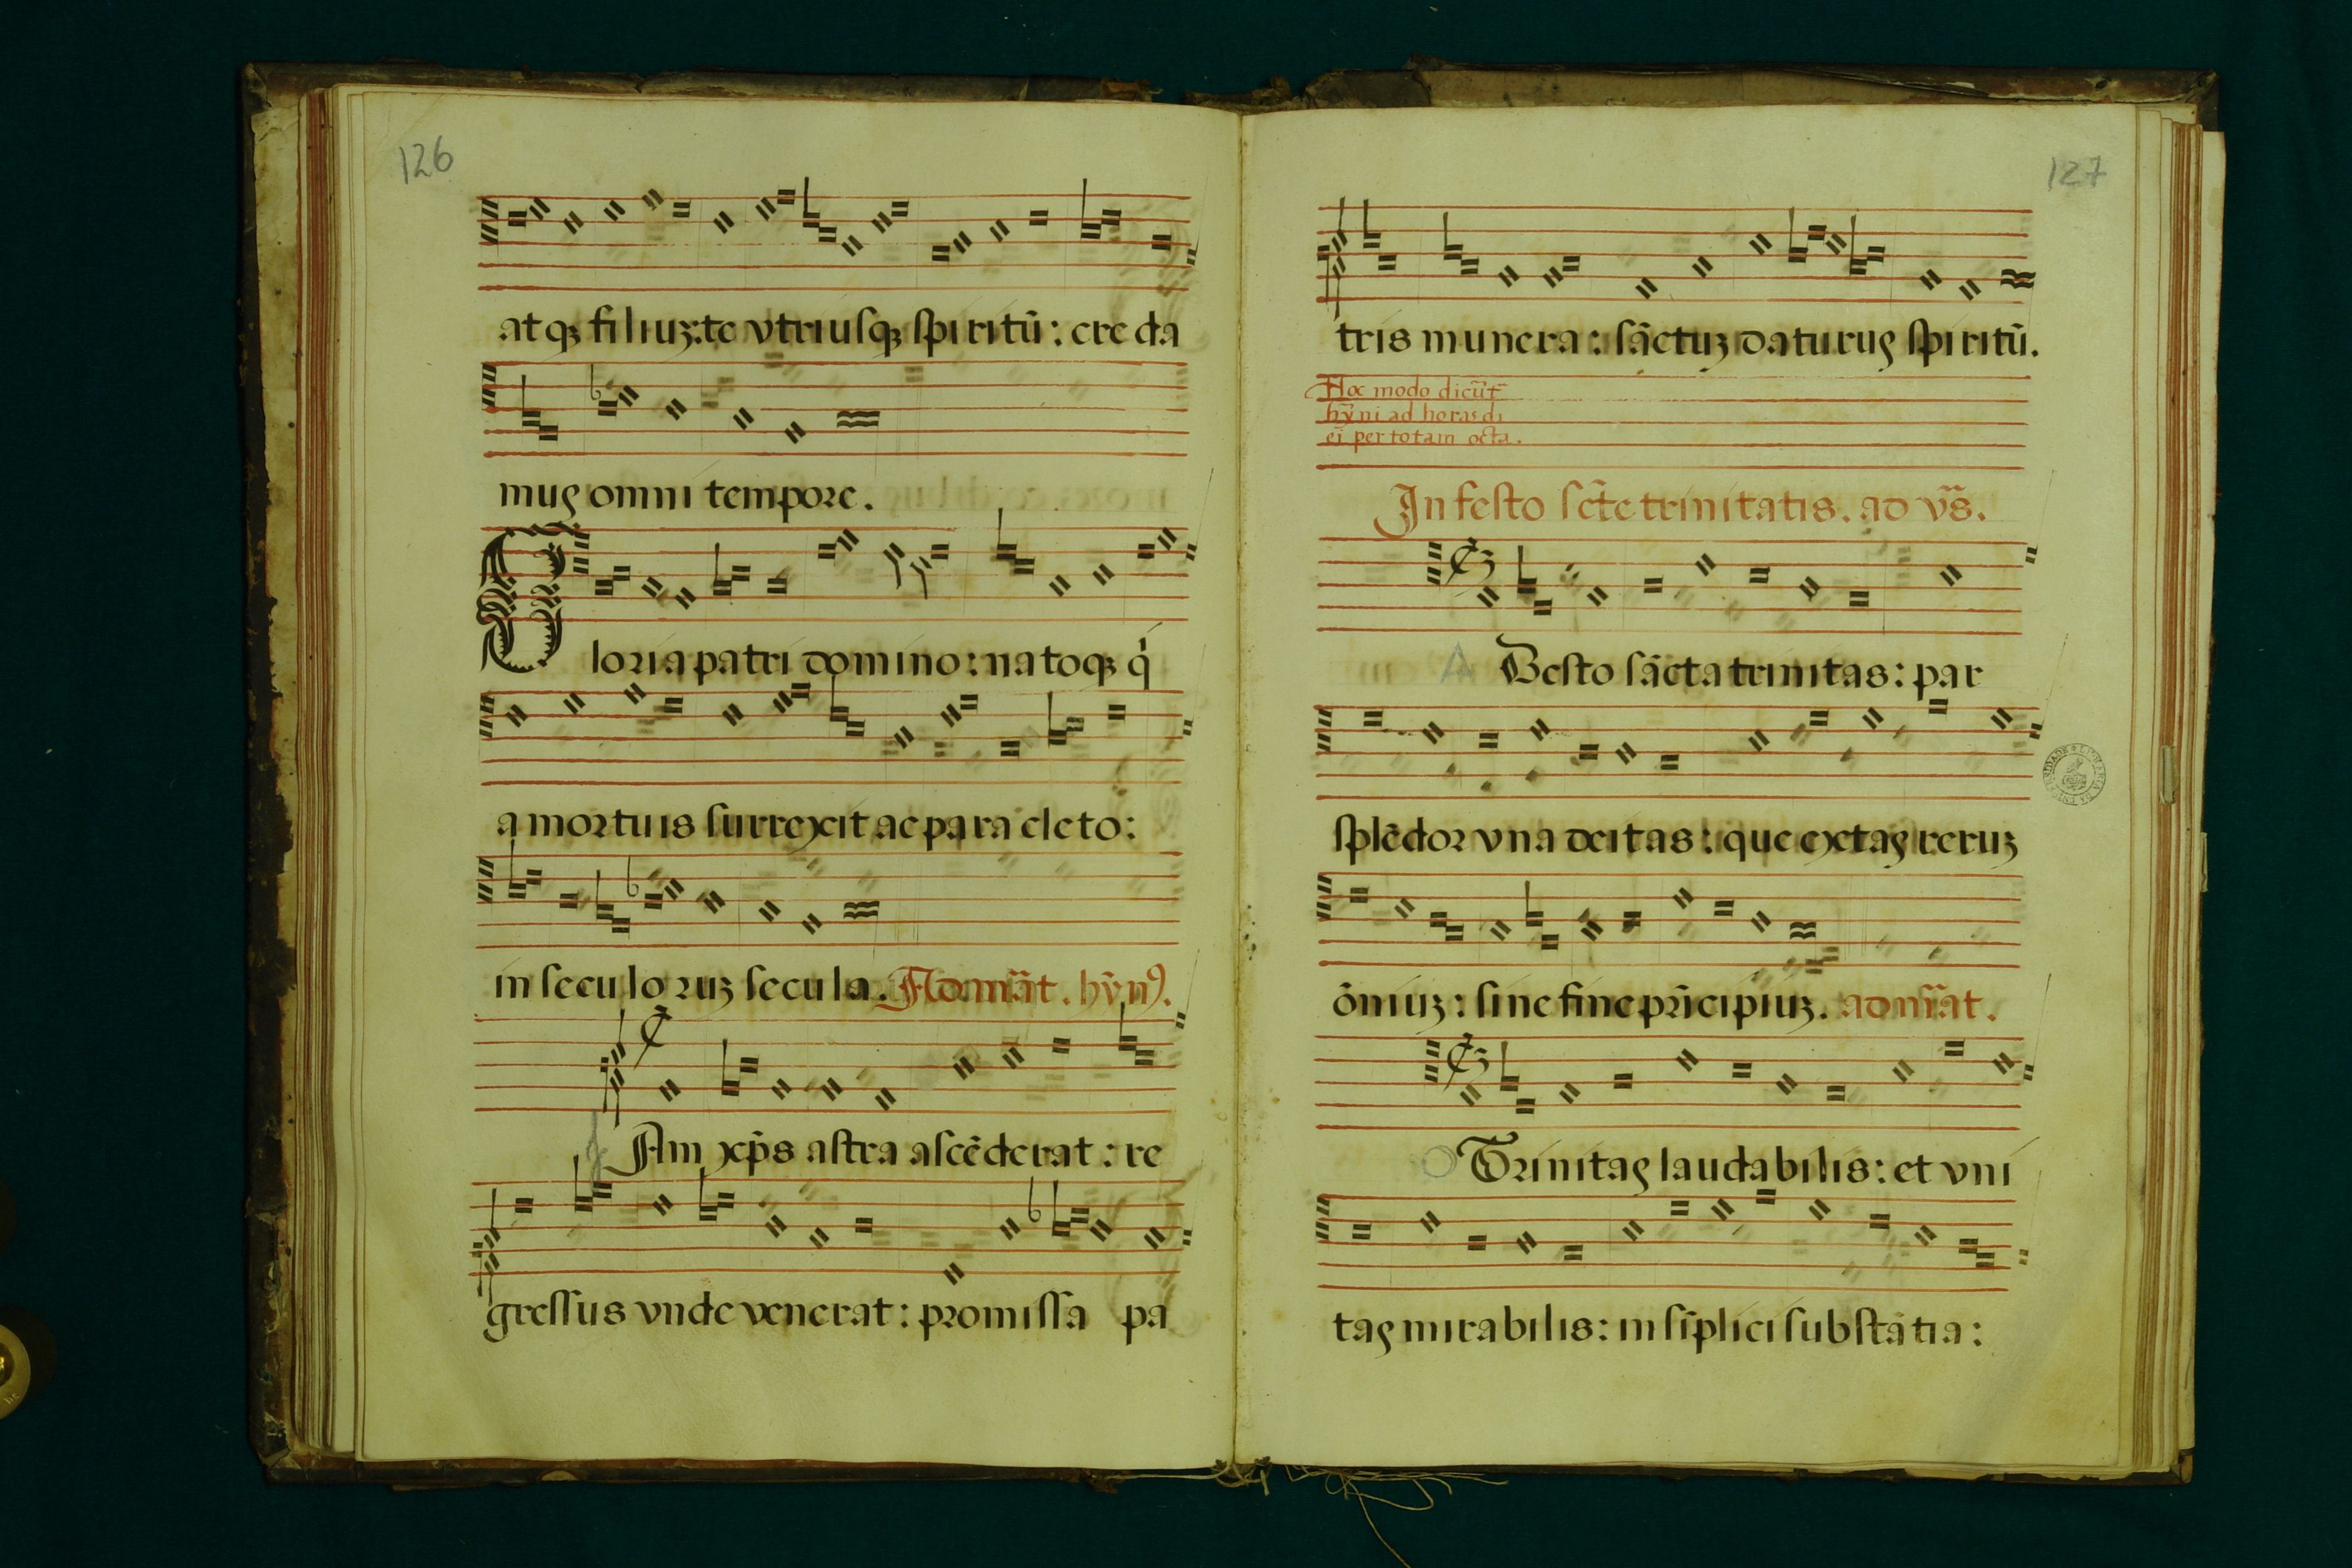 126
atqȝ filiuȝ: te vtriusqȝ spiritū: creda
mus omni tempore.
Gloria patri domino: natoqȝ q́
a mortuis surrexit ac paracleto:
in seculoruȝ secula. Ad mat̄. hȳn⁹.
Jam xp̄s astra ascēderat: re
gressus vnde venerat: promissa pa
127
tris munera: sāctuȝ daturus spiritū.
Hoc modo dicūt̄
hȳni ad horas di
ei per totam octa.
In festo sct̄e trinitatis. ad vr̄s.
A Desto sācta trinitas: par
splēdor vna deitas: que extas reruȝ
ōniuȝ: sine fine pr̄icipiuȝ. ad mat̄.
O Trinitas laudabilis: et vni
tas mirabilis: in sīplici substātia: